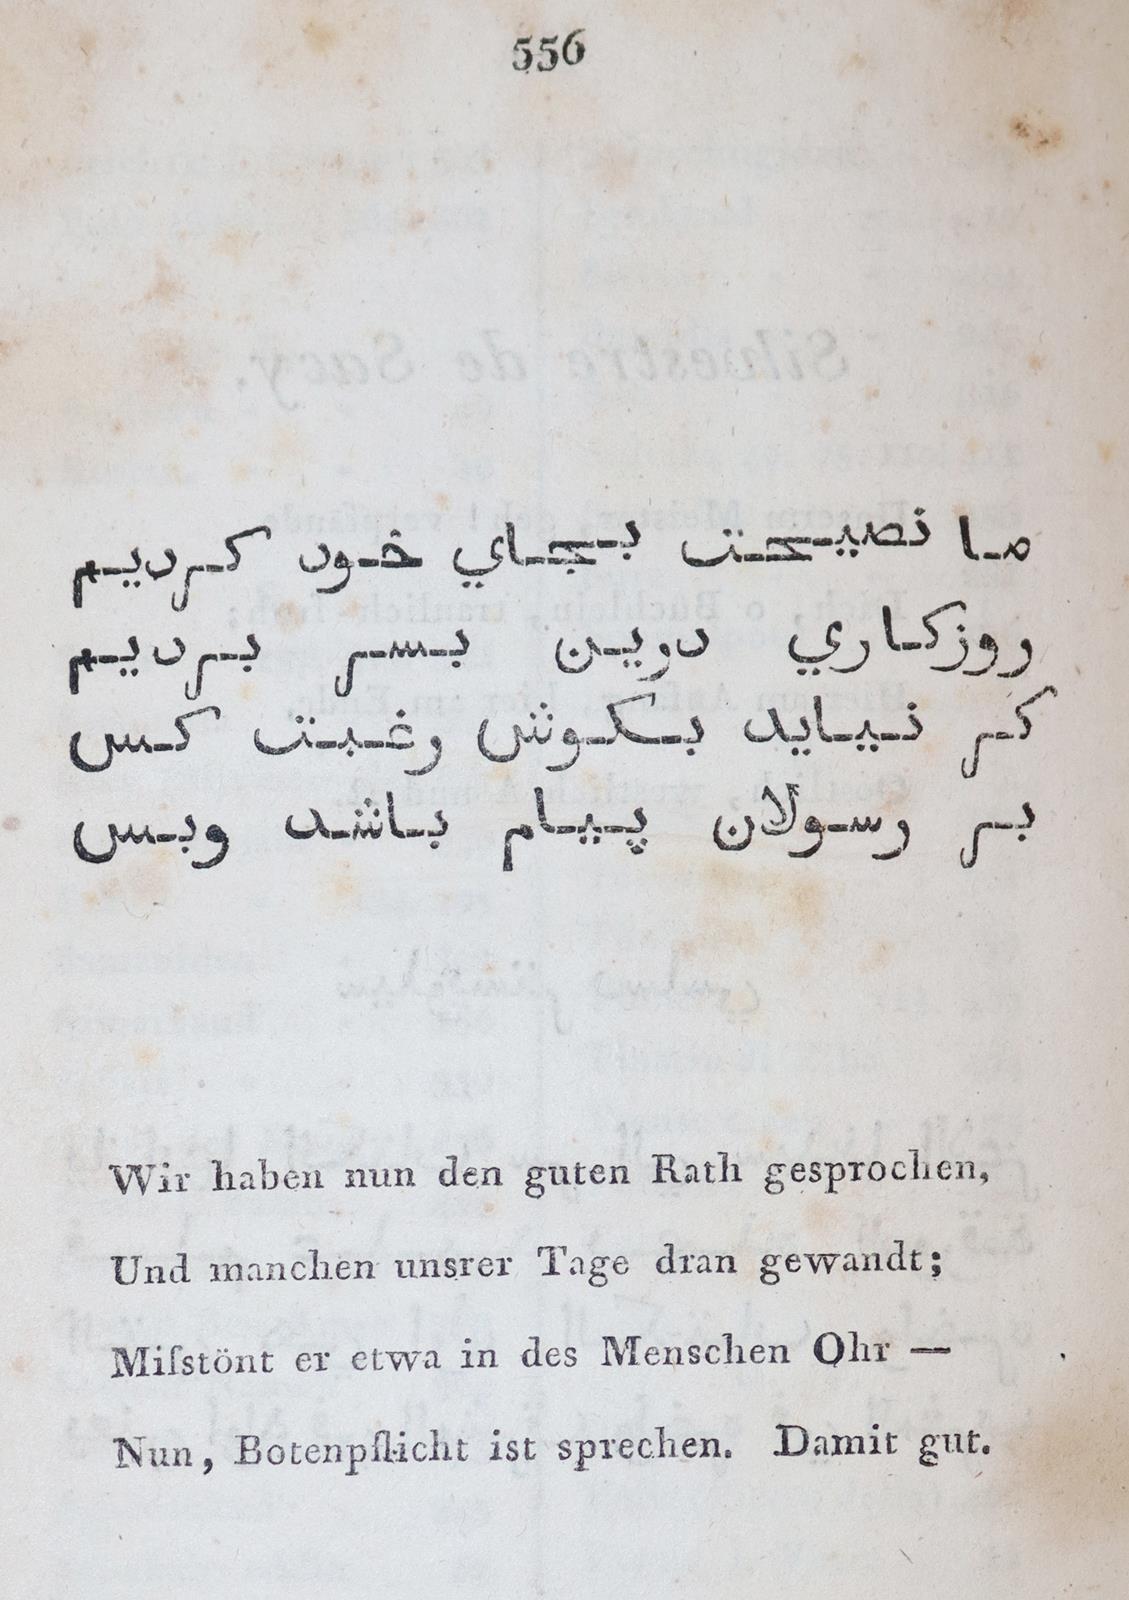 556
ما نصيحت بجاي خود كرديم
روزكاري درين بسر برديم
كر نيايد بكوش رغبت كس
بر رسولان پيام باشد وبس
Wir haben nun den guten Rath gesprochen,
Und manchen unsrer Tage dran gewandt;
Miſstönt er etwa in des Menschen Ohr —
Nun, Botenpflicht ist sprechen. Damit gut.